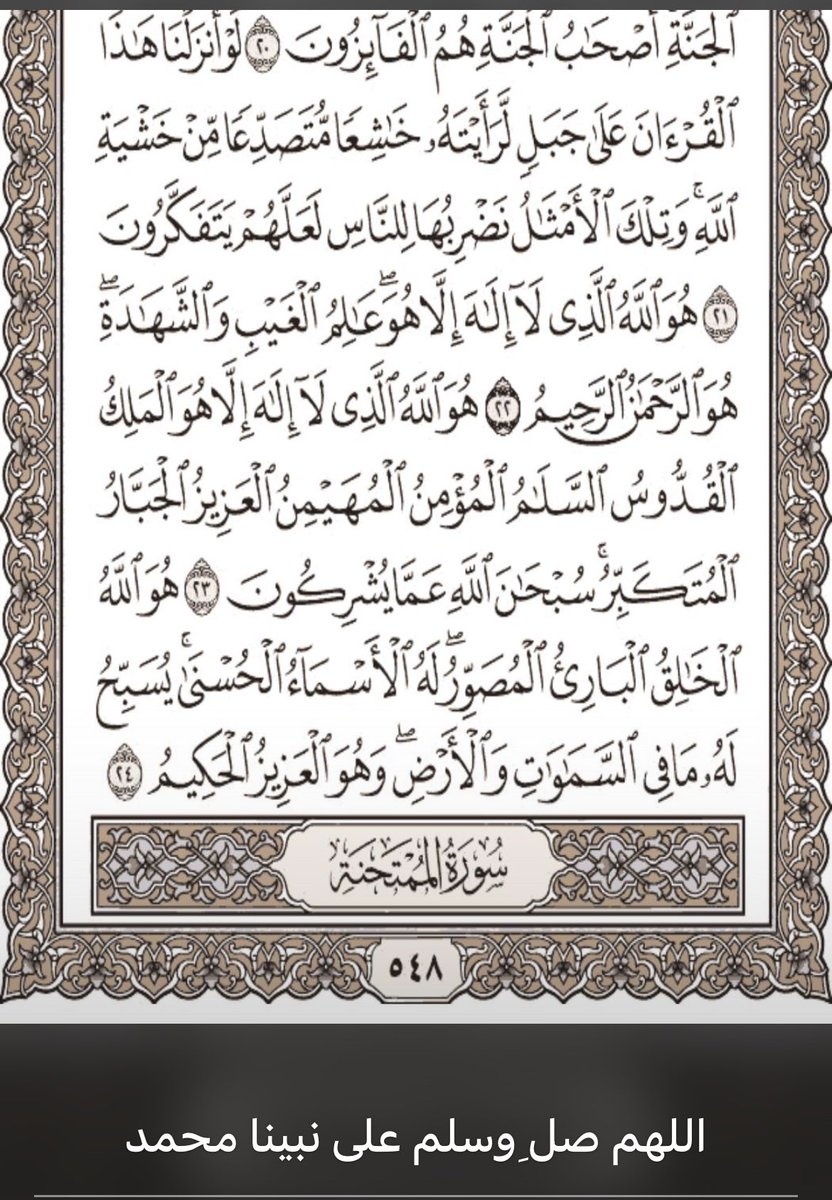 ٱلْجَنَّةِ أَصْحَٰبُ ٱلْجَنَّةِ هُمُ ٱلْفَآئِزُونَ ٢٠ لَوْ أَنزَلْنَا هَٰذَا
ٱلْقُرْءَانَ عَلَىٰ جَبَلٍ لَّرَأَيْتَهُۥ خَٰشِعًا مُّتَصَدِّعًا مِّنْ خَشْيَةِ
ٱللَّهِۚ وَتِلْكَ ٱلْأَمْثَٰلُ نَضْرِبُهَا لِلنَّاسِ لَعَلَّهُمْ يَتَفَكَّرُونَ
٢١ هُوَ ٱللَّهُ ٱلَّذِى لَآ إِلَٰهَ إِلَّا هُوَۖ عَٰلِمُ ٱلْغَيْبِ وَٱلشَّهَٰدَةِۖ
هُوَ ٱلرَّحْمَٰنُ ٱلرَّحِيمُ ٢٢ هُوَ ٱللَّهُ ٱلَّذِى لَآ إِلَٰهَ إِلَّا هُوَ ٱلْمَلِكُ
ٱلْقُدُّوسُ ٱلسَّلَٰمُ ٱلْمُؤْمِنُ ٱلْمُهَيْمِنُ ٱلْعَزِيزُ ٱلْجَبَّارُ
ٱلْمُتَكَبِّرُۚ سُبْحَٰنَ ٱللَّهِ عَمَّا يُشْرِكُونَ ٢٣ هُوَ ٱللَّهُ
ٱلْخَٰلِقُ ٱلْبَارِئُ ٱلْمُصَوِّرُۖ لَهُ ٱلْأَسْمَآءُ ٱلْحُسْنَىٰۚ يُسَبِّحُ
لَهُۥ مَا فِى ٱلسَّمَٰوَٰتِ وَٱلْأَرْضِۖ وَهُوَ ٱلْعَزِيزُ ٱلْحَكِيمُ ٢٤
سُورَةُ المُمْتَحنَةِ
٥٤٨
اللهم صلِ وسلم على نبينا محمد